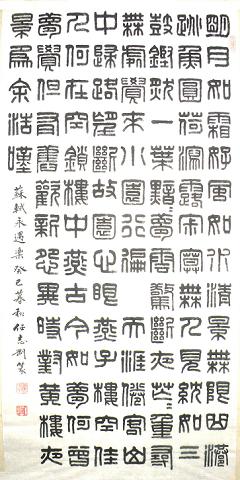 明月如霜好風如水清景無限曲港
跳魚圓荷瀉露寂寞無人見紞如三
鼓鏗然一葉黯々夢雲驚斷夜茫々重尋
無處覺來小園行遍天涯倦客山
中歸路望斷故園心眼燕子樓空佳
人何在空鎖樓中燕古今如夢何曾
夢覺但有舊歡新怨異時對黃樓夜
景為余浩嘆
蘇軾永遇樂癸巳暮秋任志剛篆